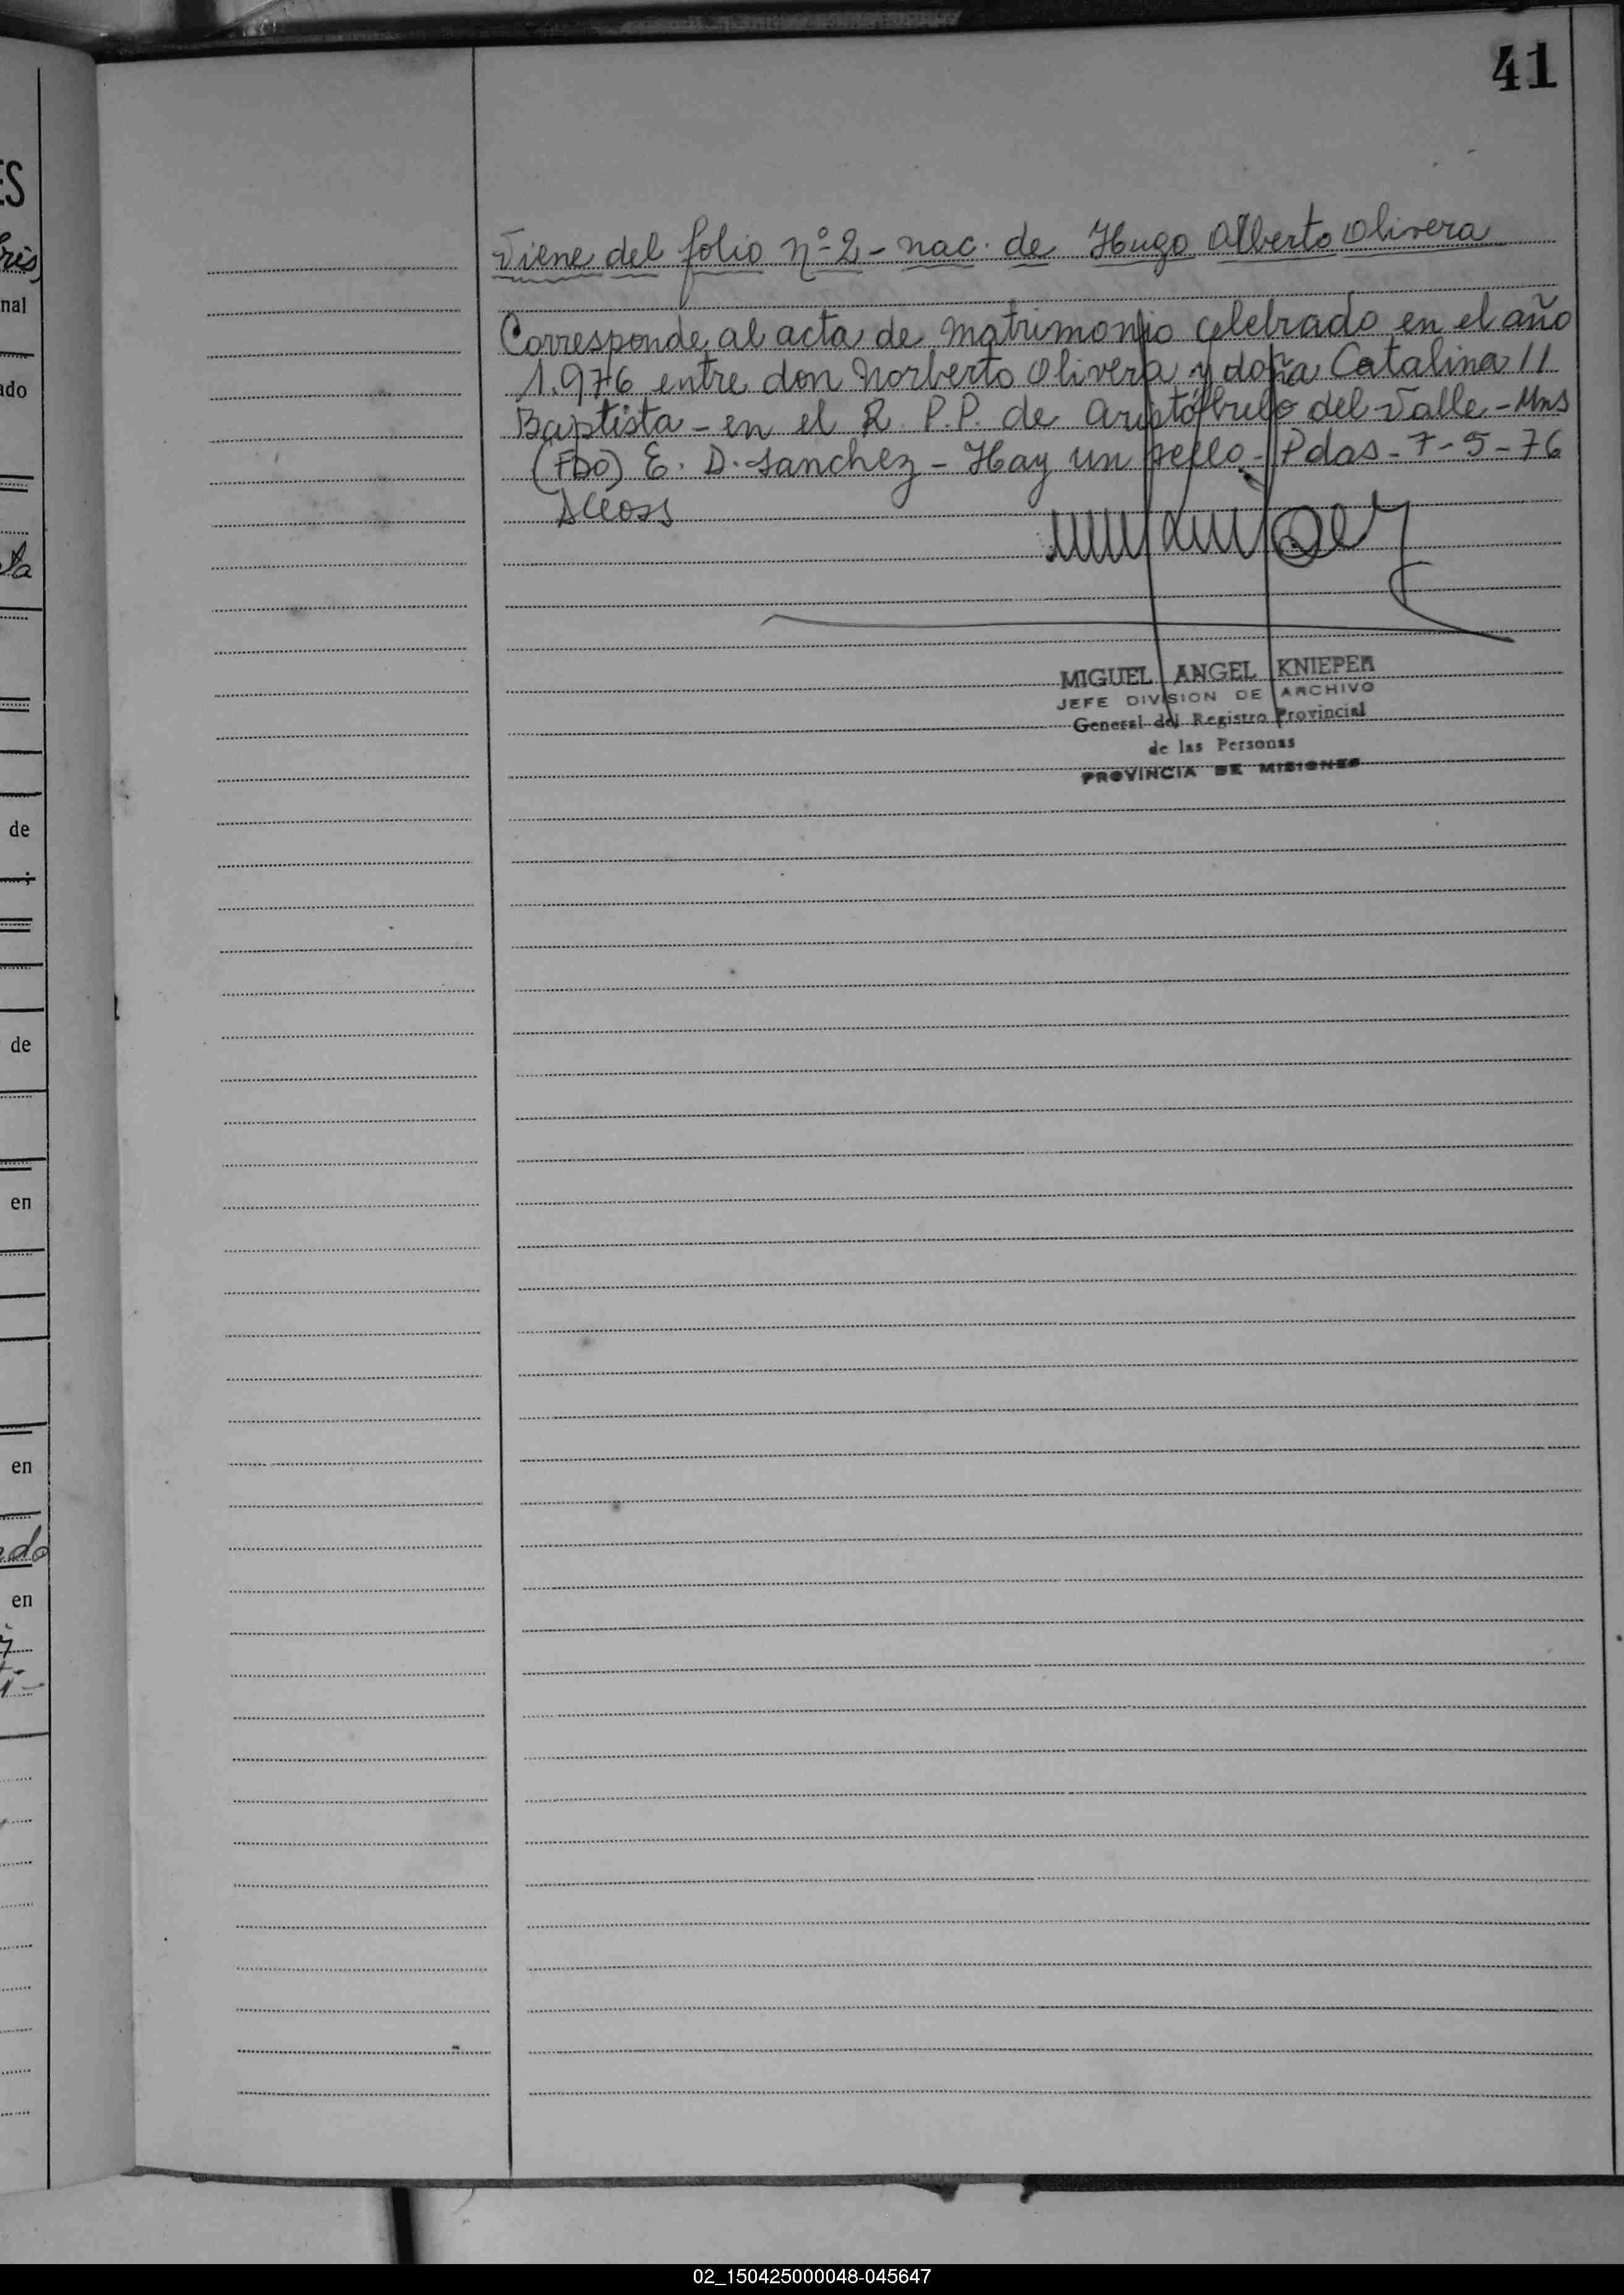 41
Viene del folio nº 2 - nac. de Hugo Alberto Olivera
Corresponde al acta de matrimonio celebrado en el año
1.976 entre don Norberto Olivera y doña Catalina //
Baptista - en el R. P.P. de Aristóbulo del Valle - Mns
(FDO) E. D. Sanchez - Hay un sello - Pdas - 7-5-76
MIGUEL ANGEL KNIEPER
JEFE DIVISION DE ARCHIVO
General del Registro Provincial
de las Personas
PROVINCIA DE MISIONES
ES
nal
ado
de
de
en
en
en
02_150425000048-045647